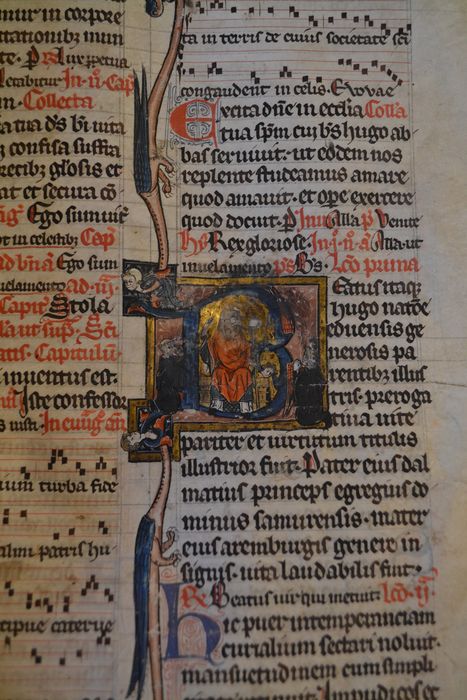 mur in corpore
tationibus inui
te. ps. Jure ppetua
letabitur. In .ij. Cap
in. Collecta
ata tua ds bi uita
z confisa suffra
recibz glosis et
at et secura co
Ego sum uit
ot in celestibz Cap
Ego sum
uelamento
Capit Stola
Capitulum
inuentus est.
Iste confessor
ium turba fide
alm patris hu
tipue caterue
ta in terris de cuius societate sci
congaudent in celis. Evovae
Excita dne in ecclia Colla
tua spm cui bs hugo ab
bas seruiuit. ut eodem nos
replente studeamus amare
quod amauit. et ope exercere
quod docuit. p Inui Alla p Venite
Rex gloriose. Alla. ut
in uelamento ps Bs. Lco prima
Beatus itaqz
hugo natoe
eduensis ge
nerosis pa
rentibz illus
tris. preroga
tiua uite
pariter et uirtutum titulis
illustrior fuit. Pater eius dal
matius princeps egregius do
minus samurensis. mater
eius aremburgis genere in
signis. uita laudabilis fuit.
Rx Beatus uir qui metuit. lco .ij.
Hic puer intemperanciam
curialium sectari noluit.
mansuetudinem cum simpli